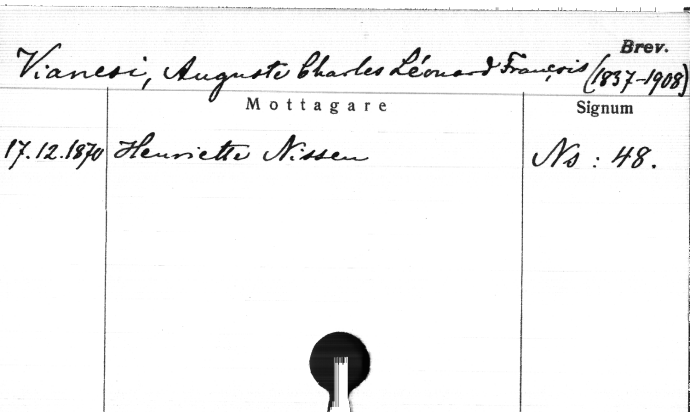 Brev.
Vianesi, Auguste Charles Léonard François (1837-1908)
Mottagare Signum
17.12.1870 Henriette Nissen Ns: 48.